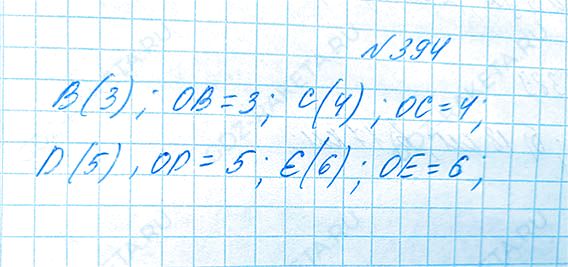 N394
B(3); OB=3; C(4); OC=4;
D(5), OD=5; E(6); OE=6;